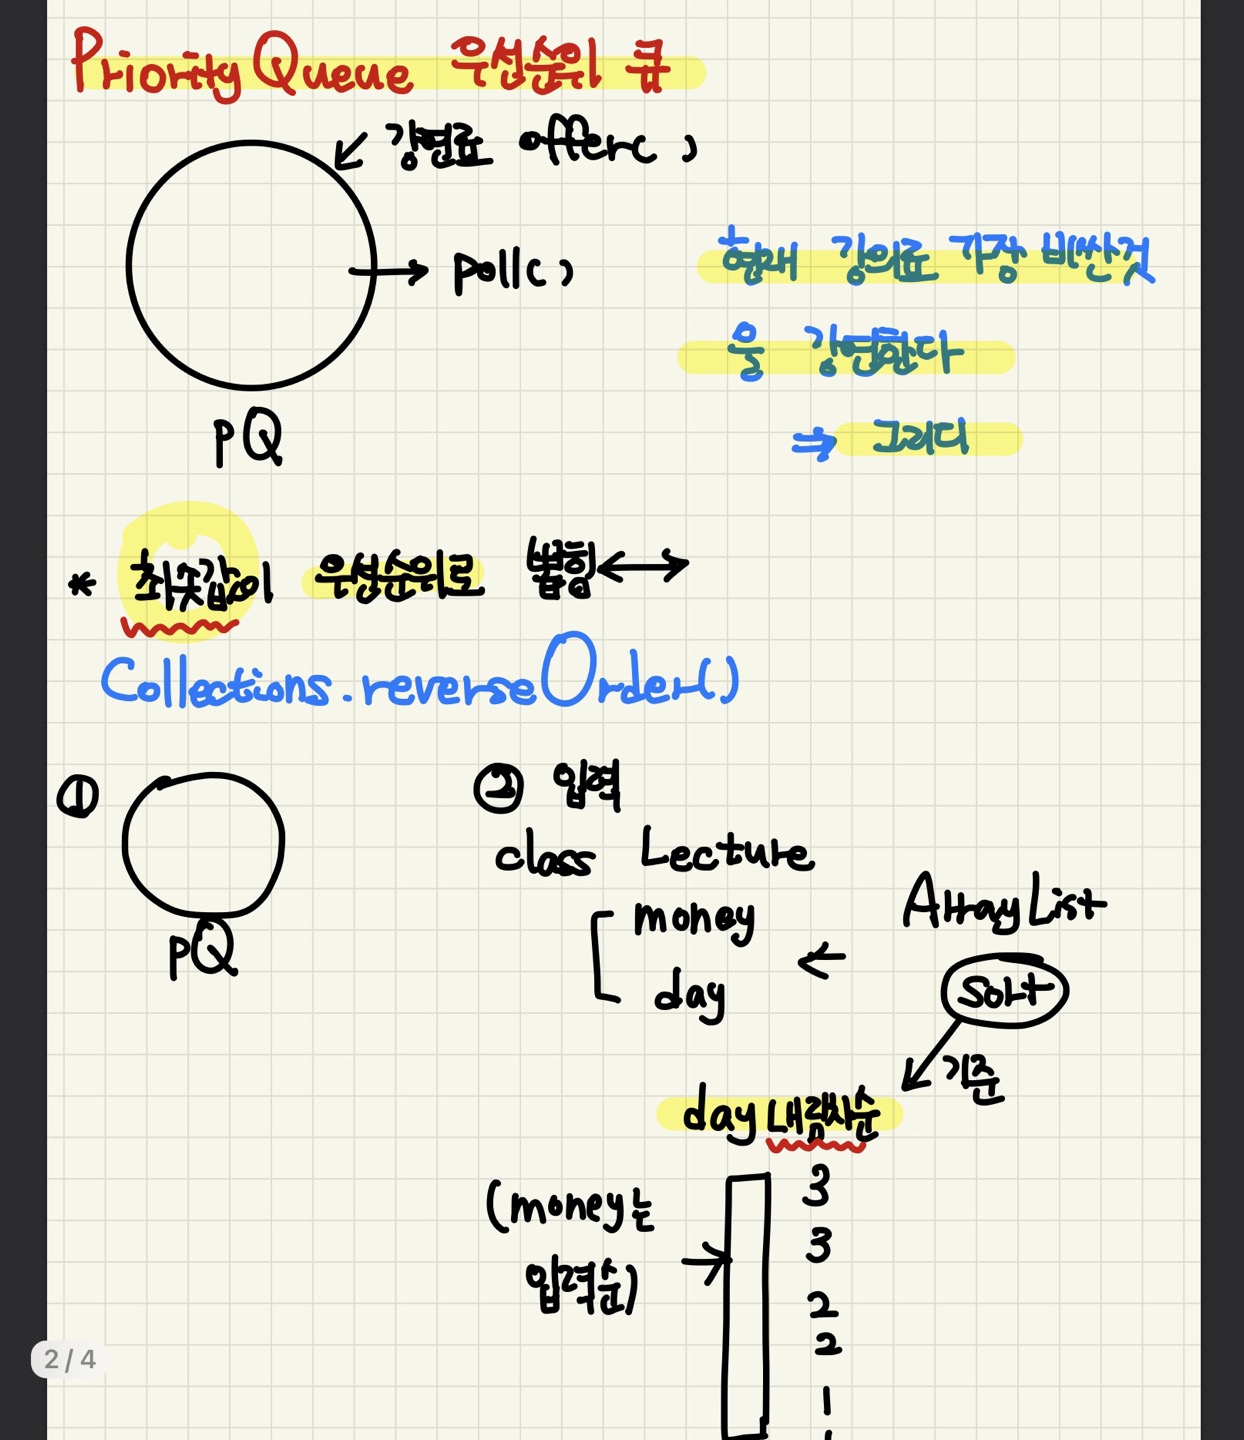 PriorityQueue 우선순위 큐
강연료 offer( )
poll( )
PQ
현재 강의료 가장 비싼것
을 강연한다
⇒ 그리디
* 최솟값이 우선순위로 뽑힘 ↔
Collections.reverseOrder()
①
PQ
② 입력
class Lecture
money
day
←
ArrayList
sort
기준
day 내림차순
(money는
입력순)
3
3
2
2
1
2 / 4